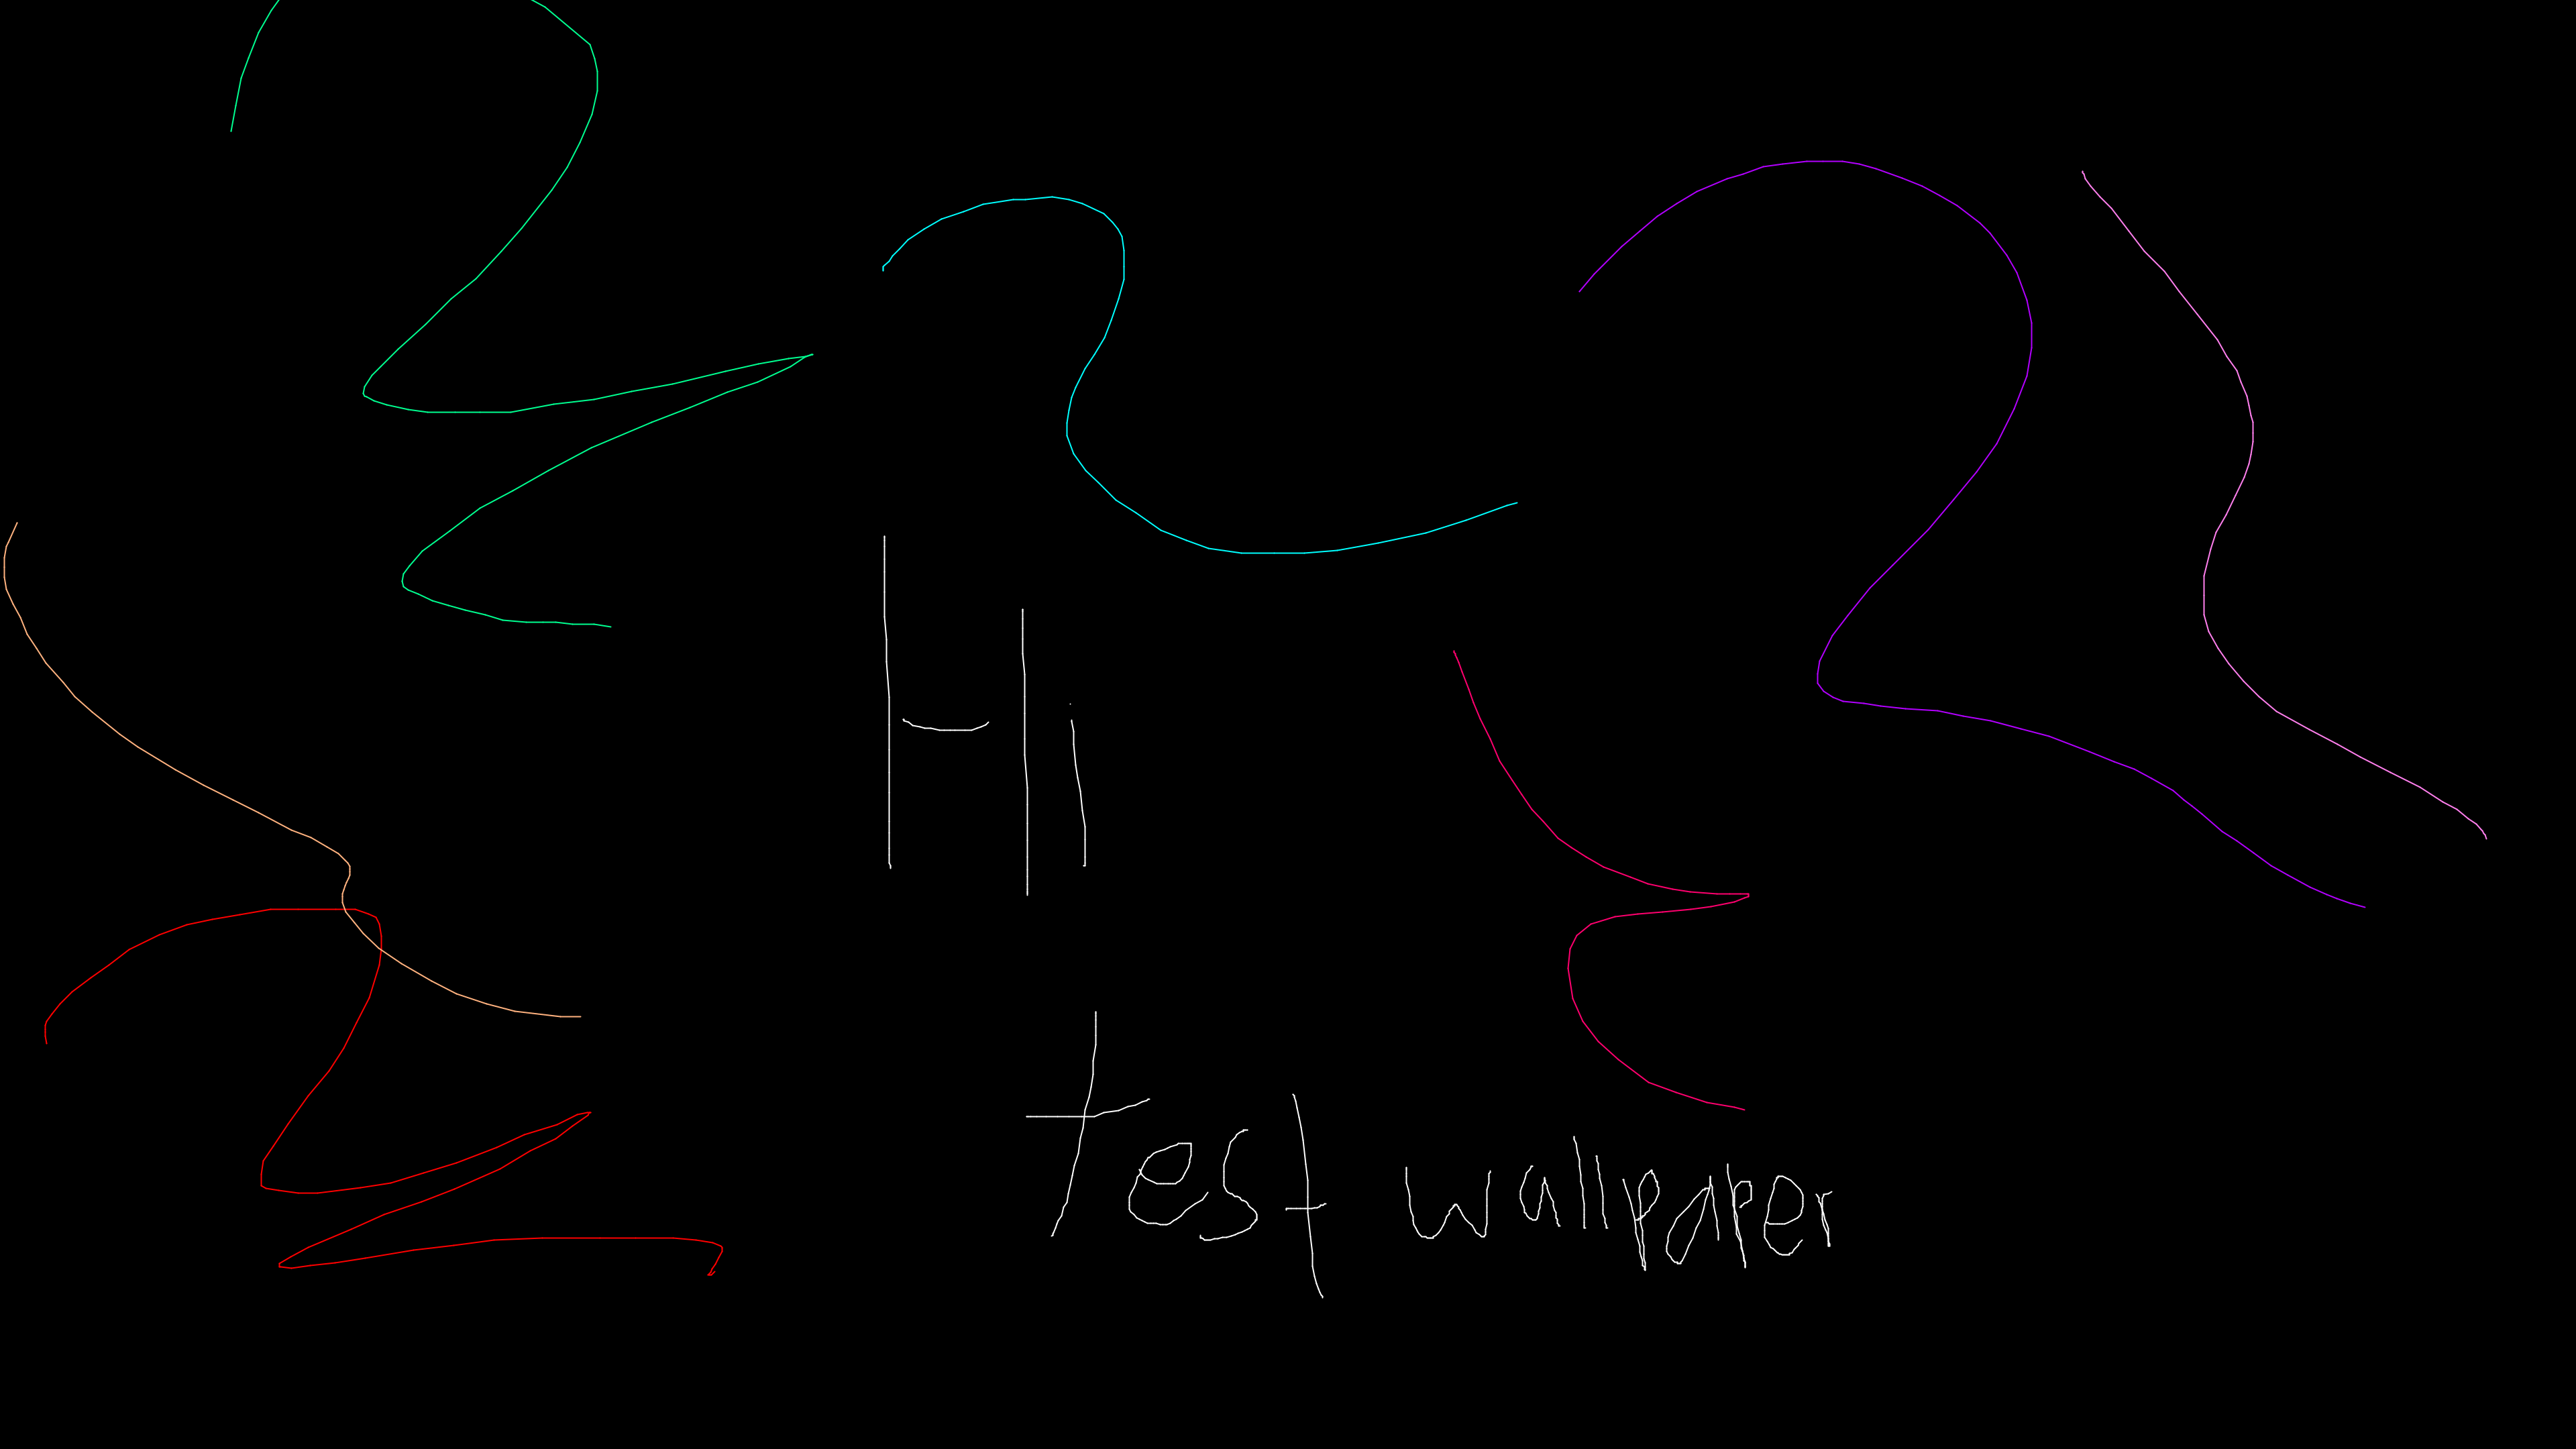 Hi
test wallpaper